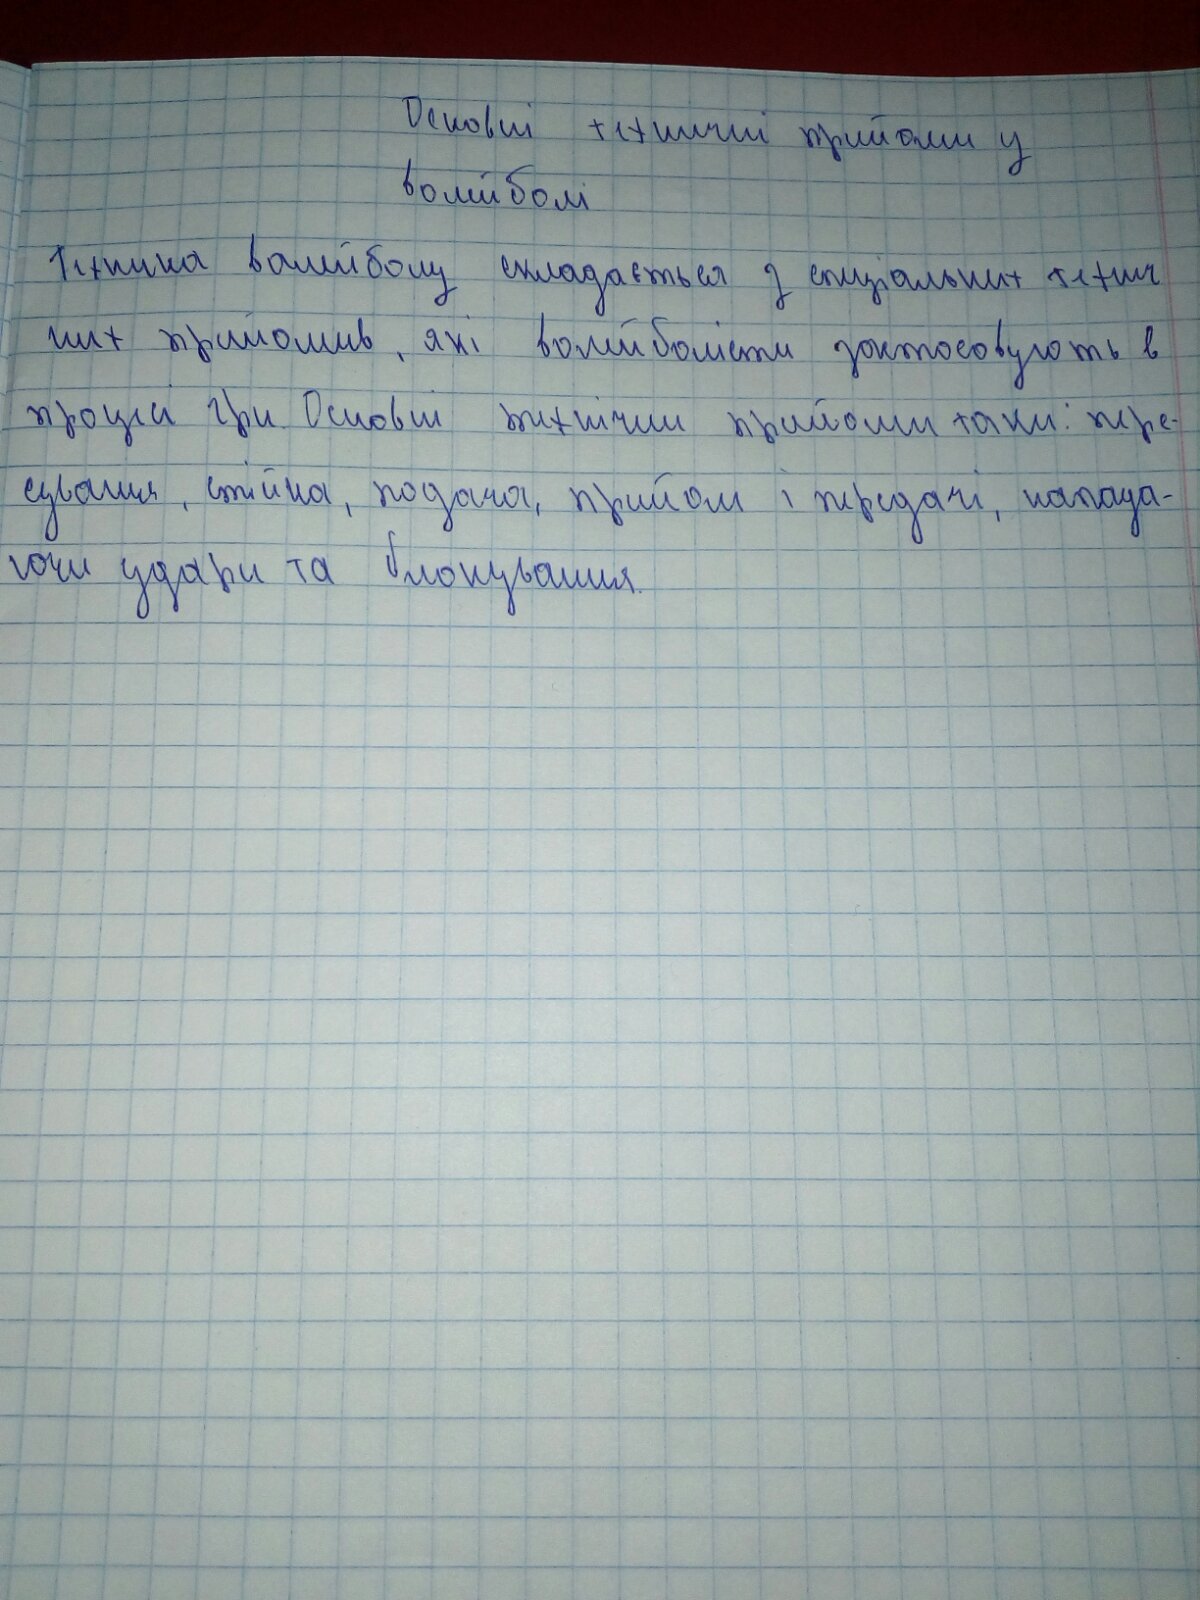 Основні технічні прийоми у
волейболі
Техніка волейболу складається з спеціальних техніч
них прийомив, які волейболісти зактосовують в
процесі гри. Основні технічни прийоми таки: пере-
сування, стійка, подача, прийом і передачі, нападa-
ючи удари та блокування.